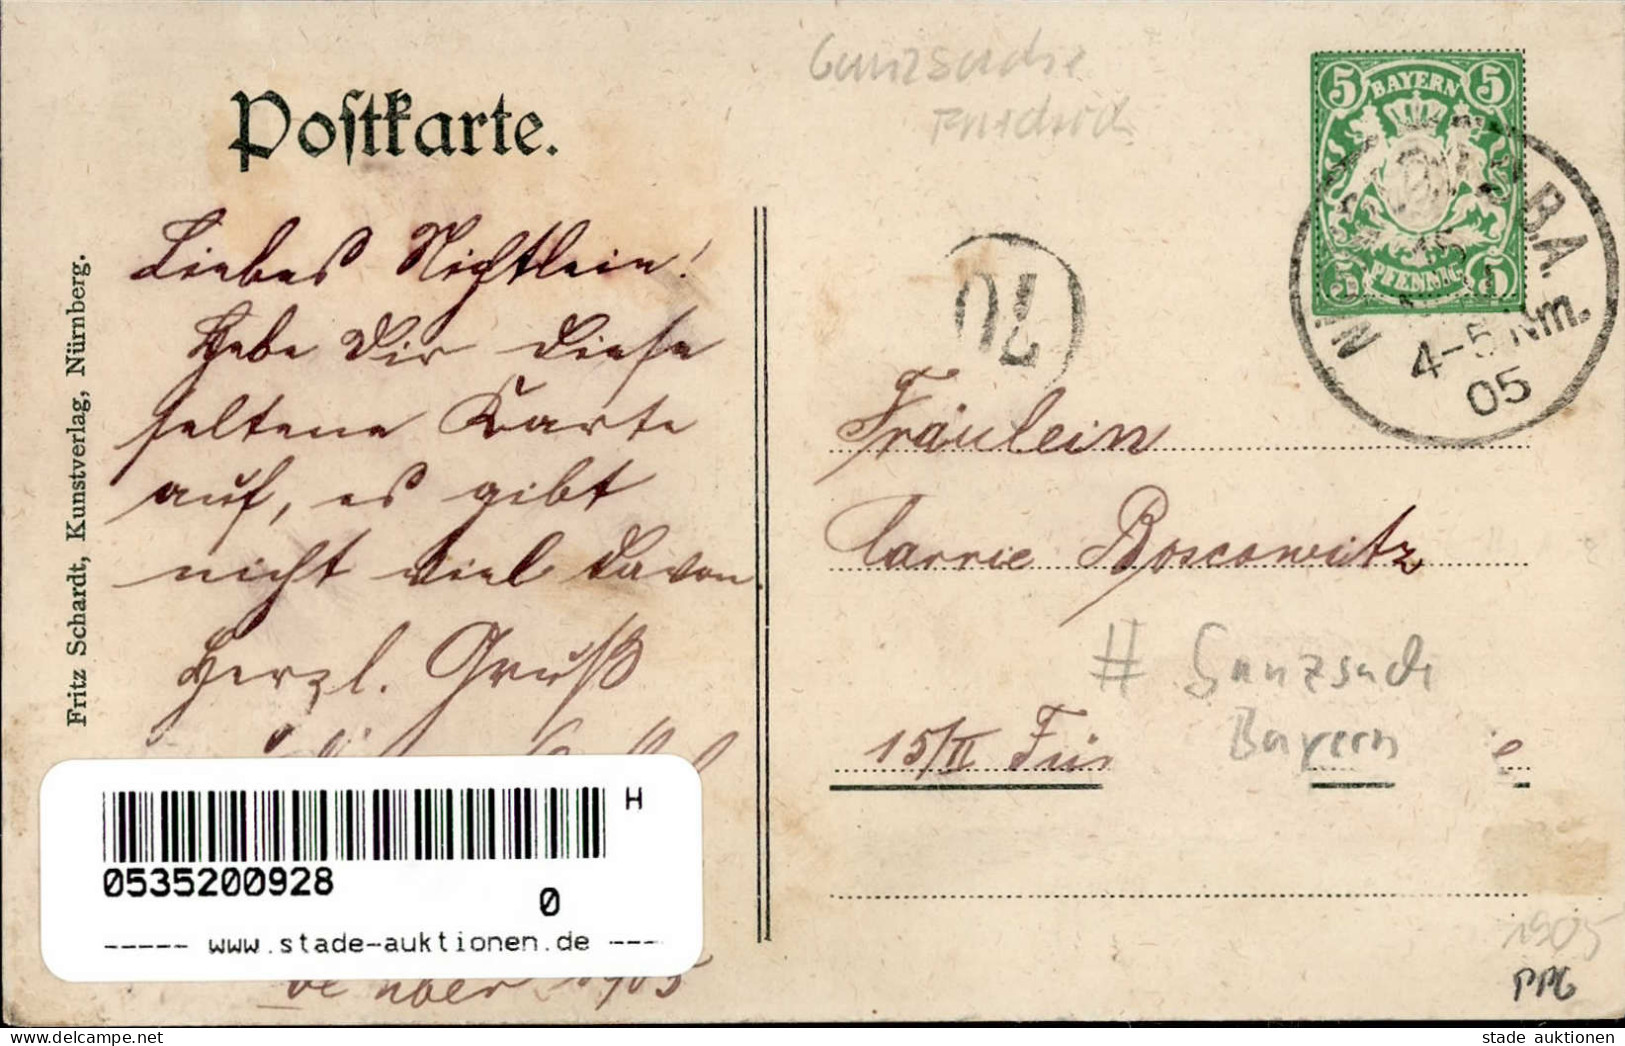 Postkarte.
Liebes Nichtlein!
Hebe Dir diese
seltene Karte
auf, es gibt
nicht viel davon.
Herzl. Gruß
Fritz Schardt, Kunstverlag, Nürnberg.
H
0535200928
0
----- www.stade-auktionen.de ----
1905
Ganzsache
5 BAYERN 5
5 PFENNIG 5
B.A.
4-5 Nm.
05
Fräulein
Carrie Boscowitz
# Ganzsache
Bayern
15/II
1905
PPG
stade auktionen